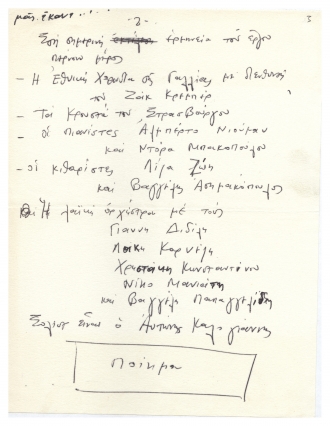 μας έκανε...
-2-
3
Στη σημερινή ερμηνεία του έργου
παίρνουν μέρος
- Η Εθνική Χορωδία της Γαλλίας με διευθυντή
τον Ζακ Κρεμπέρ
- Τα Κρουστά του Στρασβούργου
- οι πιανίστες Αλμπέρτο Νιούμαν
και Ντόρα Μπακοπούλου
- οι κιθαρίστες Λίζα Ζώη
και Βαγγέλης Ασημακόπουλος
Η λαϊκή ορχήστρα με τους
Γιάννη Διδίλη
Λάκη Καρνέζη
Χρηστάκη Κωνσταντίνου
Νίκο
και Βαγγέλη Παπαγγελίδη
Σολίστ είναι ο Αντώνης Καλογιάννης
Ποίημα